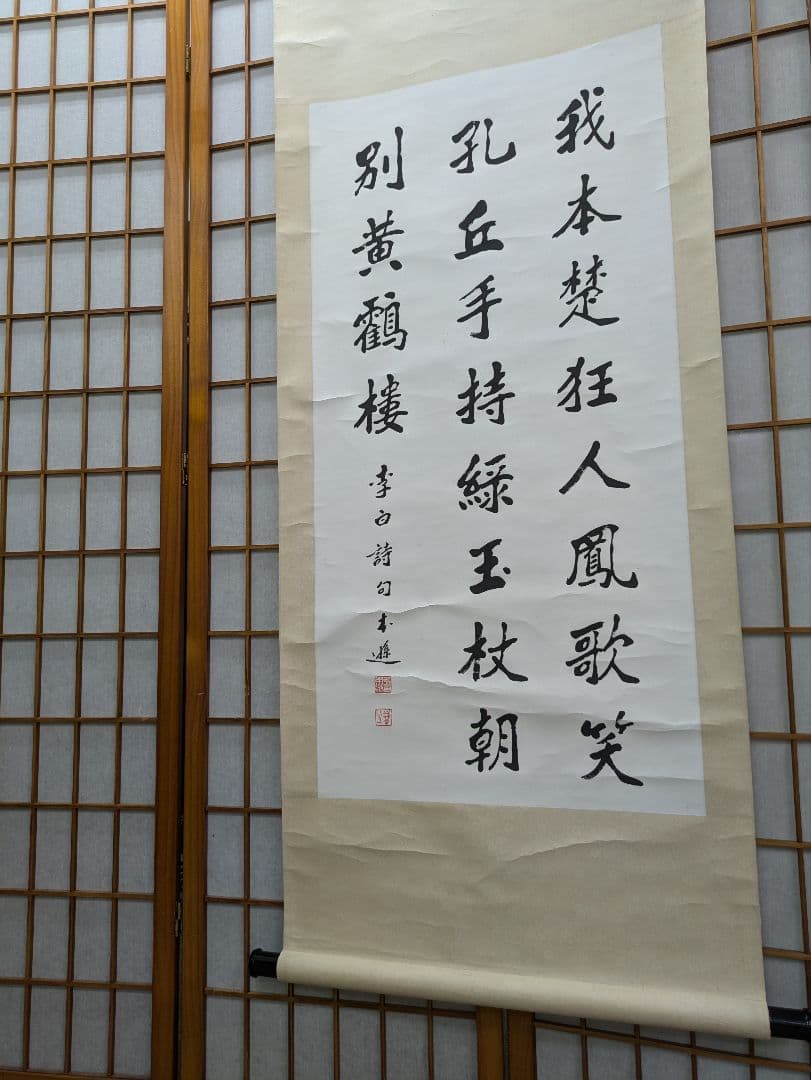 我本楚狂人鳳歌笑
孔丘手持綠玉杖朝
別黃鶴樓
李白詩句